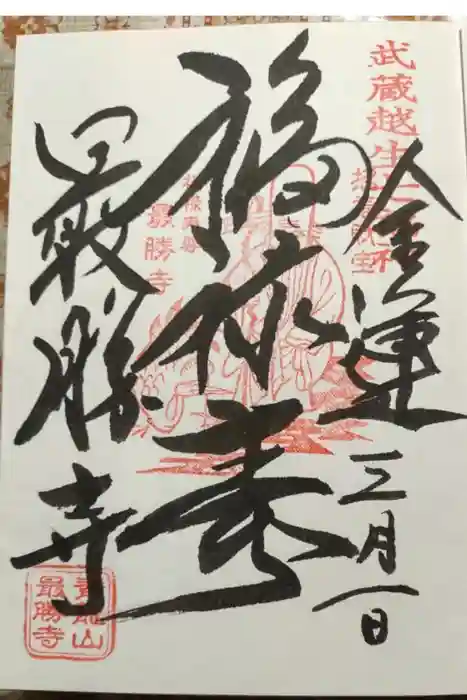 武蔵越生七福神
金運
三月一日
福禄寿
最勝寺
最勝寺
青龍山
最勝寺